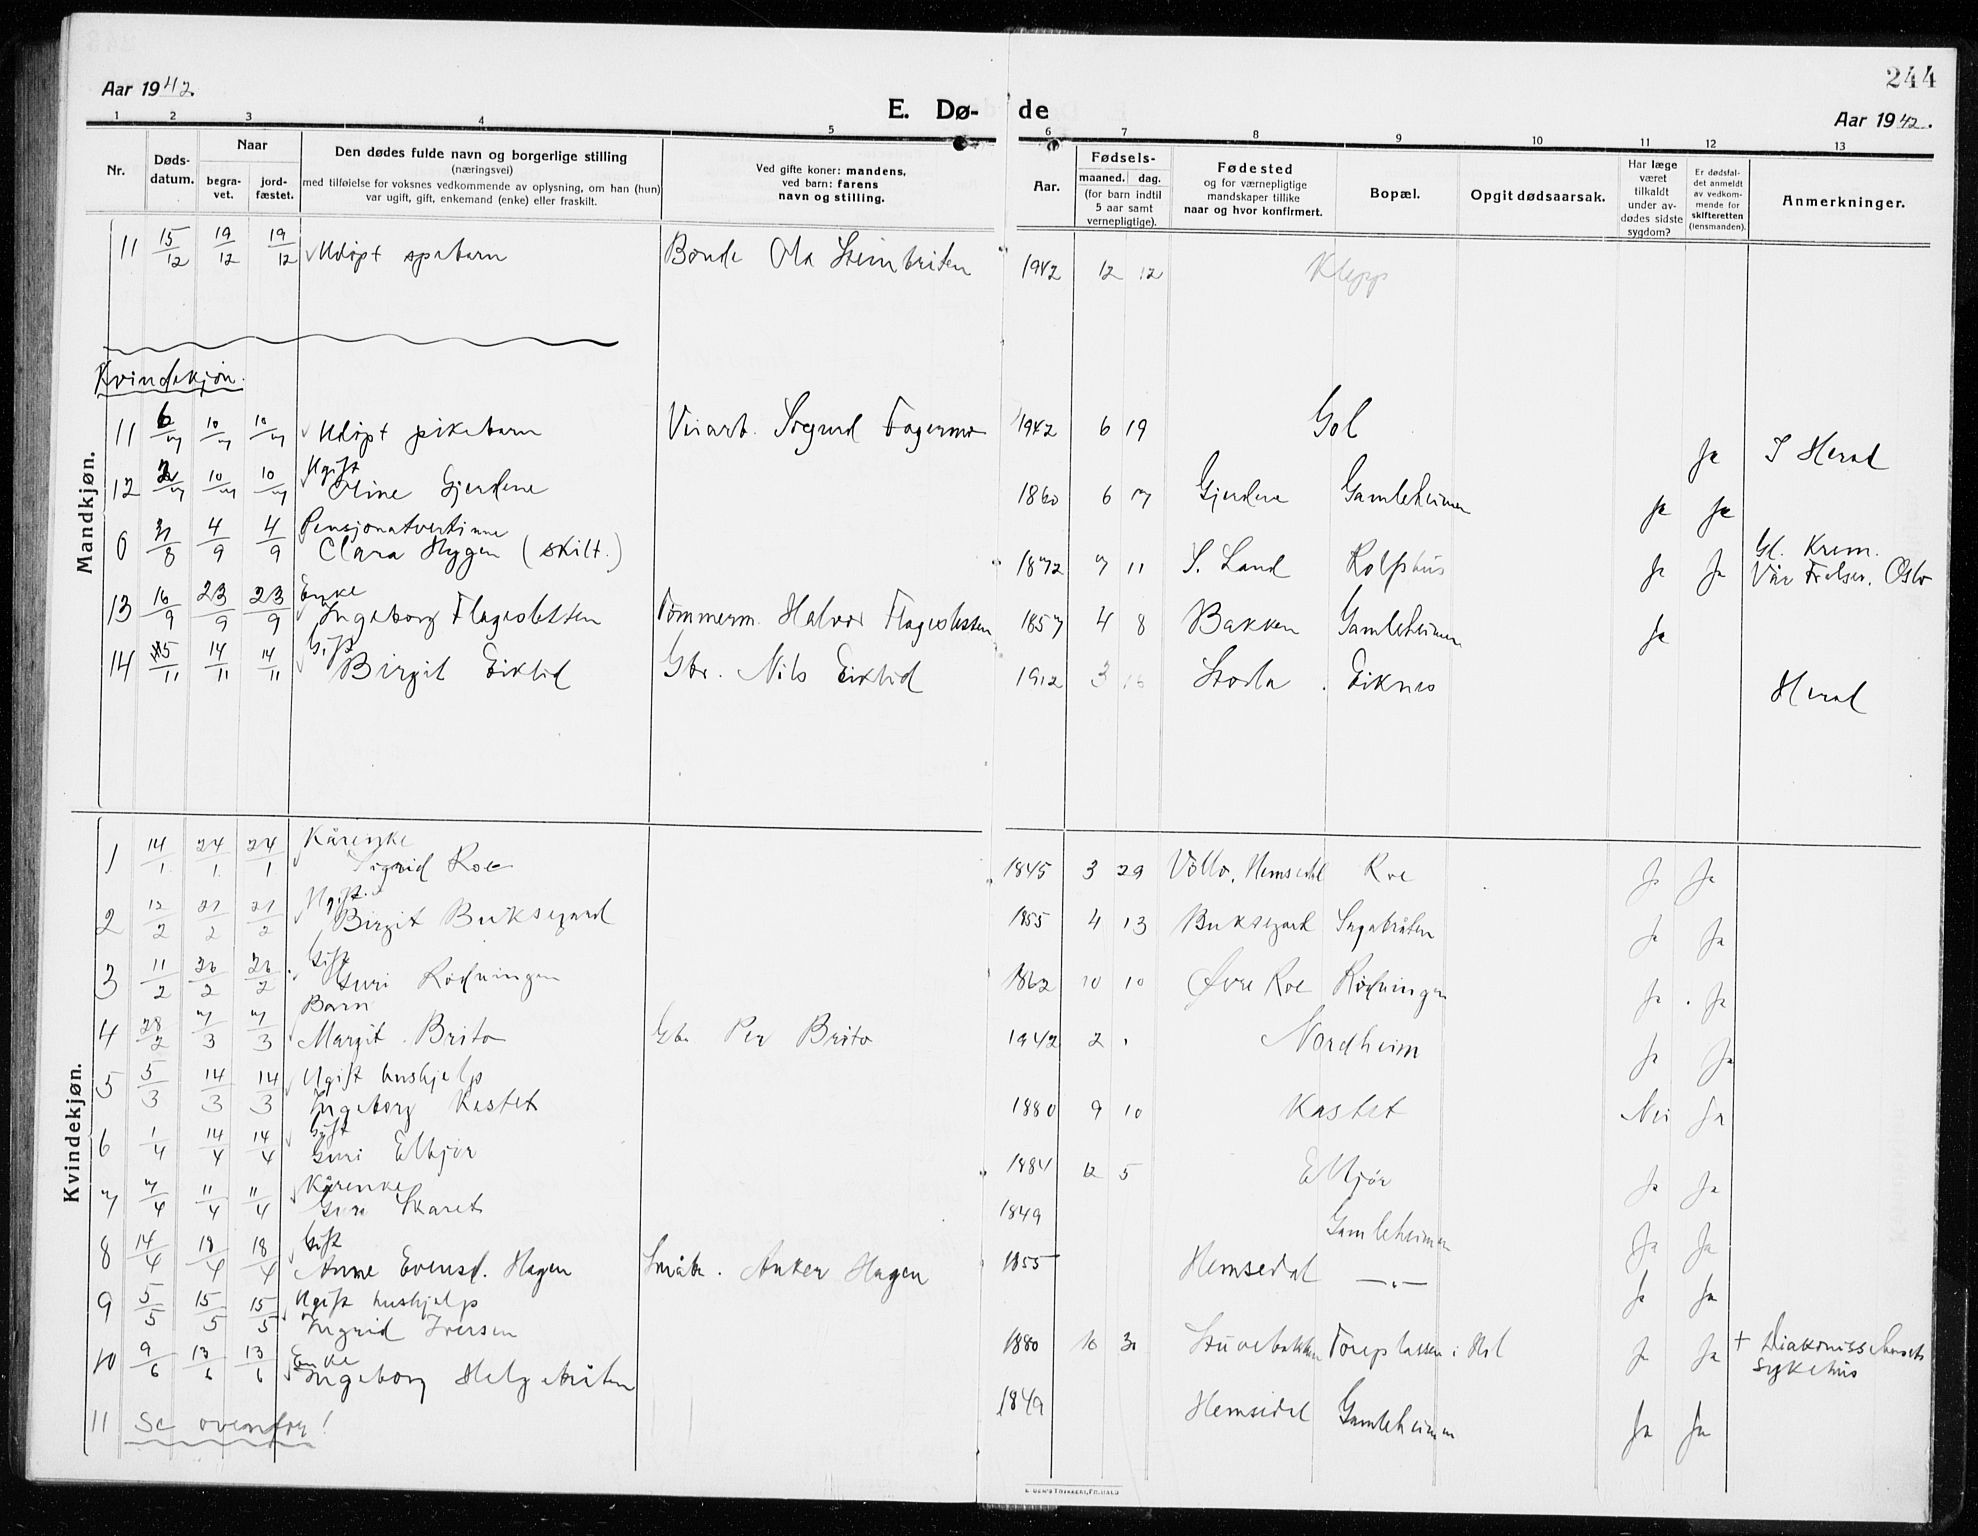 244
Aar 1942.
E. Dø- de
Aar 1942.
1 2 3 4 5 6 7 8 9 10 11 12 13
Nr.
Døds-datum.
Naar
begra-vet.
jord-fæstet.
Den dødes fulde navn og borgerlige stilling
(næringsvei)
med tilføielse for voksnes vedkommende av oplysning, om han (hun)
var ugift, gift, enkemand (enke) eller fraskilt.
Ved gifte koner: mandens,
ved barn: farens
navn og stilling.
Aar.
Fødsels-
maaned. dag.
(for barn indtil
5 aar samt
vernepligtige).
Fødested
og for værnepligtige
mandskaper tillike
naar og hvor konfirmert.
Bopæl.
Opgit dødsaarsak.
Har læge
været
tilkaldt
under av-
dødes sidste
sygdom?
Er dødsfal-
det anmeldt
av vedkom-
mende for
skifteretten
(lensmanden).
Anmerkninger.
Mandkjøn.
11 15/12 19/12 19/12 Udøpt spebarn Bonde Ola 1942 12 12 Klepp
Kvindekjøn.
11 6/7 10/7 10/7 Udøpt pikebarn Sigurd Fagermo 1942 6 19 Gol Ja I Herad
12 2/7 10/7 10/7 Ugift
Oline Gjerdene 1860 6 7 Gjerdene Gamleheimen Ja Ja
6 31/8 4/9 4/9 Pensjonatvertinne
Clara Hygen (skilt.) 1872 7 11 S. Land Rolfshus Ja Ja Gl. Krem.
Vår Frelser, Oslo
13 16/9 23/9 23/9 Enke
Ingeborg Flagesletten Tømmerm. Halvor Flagesletten 1857 4 8 Bakken Gamleheimen Ja
14 5/11 14/11 14/11 Gift
Birgit Eiklid Gbr. Nils Eiklid 1912 3 16 Eiknes Herad
Kvindekjøn.
1 14/1 24/1 24/1 Kårenke
Sigrid Roe 1845 3 29 Hemsedal Roe Ja Ja
2 12/2 21/2 21/2 Ugift
Birgit Buksegard 1855 4 13 Buksegard Ja Ja
3 11/2 26/2 26/2 Gift
Guri Rødningen 1862 10 10 Øvre Roe Rødningen Ja Ja
4 28/2 7/3 7/3 Barn
Margit Brito Gb. Per Brito 1942 2 Nordheim Ja Ja
5 5/3 14/3 14/3 Ugift hushjelp
Ingeborg Kastet 1880 9 10 Kastet Nei Ja
6 1/4 14/4 14/4 Gift
Guri Elkjør 1884 12 5 Elkjør Ja Ja
7 7/4 11/4 11/4 Kårenke
Guri Skaret 1849 Gamleheimen Ja Ja
8 14/4 18/4 18/4 Gift
Anne Evensd. Hagen Småbr. Anker Hagen 1855 Hemsedal —"— Ja Ja
9 5/5 15/5 15/5 Ugift hushjelp
Ingrid Iversen 1880 10 30 Stuvebakken i Hol Ja Ja + Diakonissehusets
sykehus
10 9/6 13/6 13/6 Enke
Ingeborg Helgebråten 1849 Hemsedal Gamleheimen Ja Ja
11 Se ovenfor!